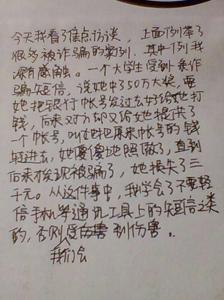 今天我看了焦点访谈，上面列举了
很多被诈骗的案例，其中一例我
深有感触。一个大学生受到来作
骗短信，说她中了50万大奖，需
她把银行帐号发过去好给她打
钱，后来对方却又给她提供了
一个帐号，叫她把原来帐号的钱
转进去，她傻傻地照做了，直到
后来才发现被骗了，她损失了三
千元。从这件事中，我学会了不要轻
信手机等通讯工具上的短信之类
的，否则会伤害 到伤害。
我们会